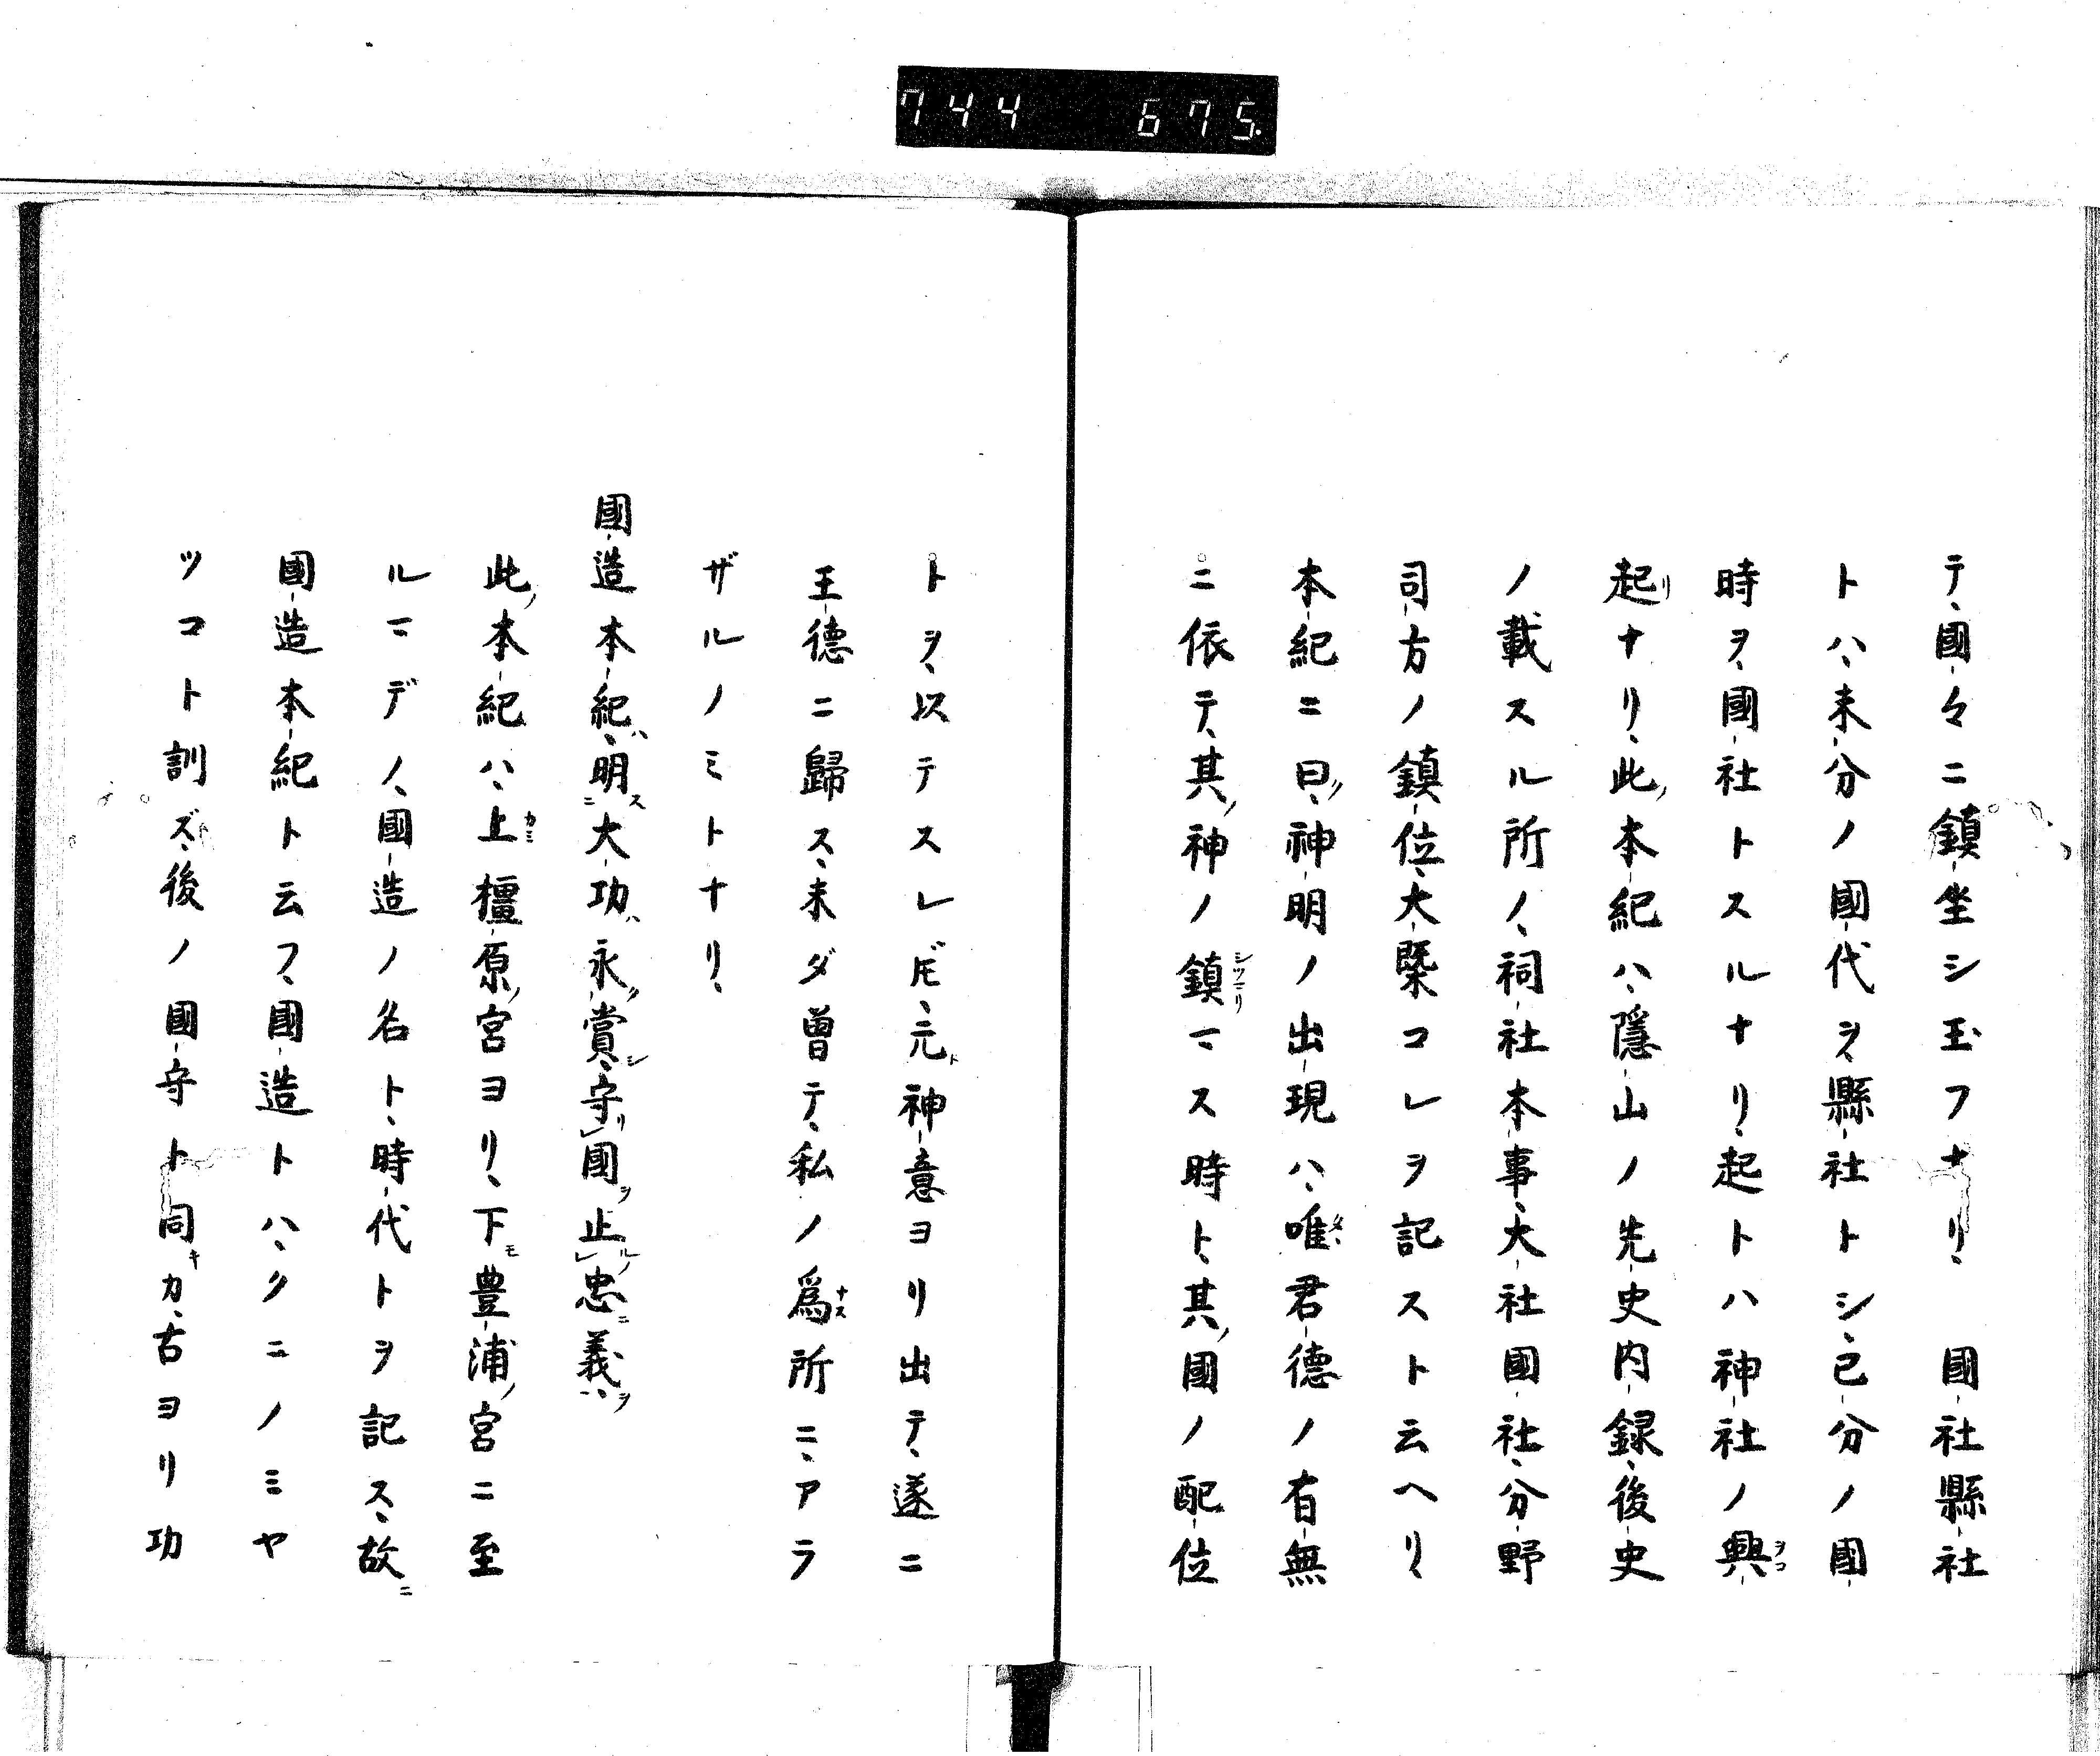 744 675.
テ、國々ニ鎮坐シ玉フナリ、國社縣社
トハ、未分ノ國代ヲ、縣社トシ、已分ノ國
時ヲ、國社トスルナリ、起トハ神社ノ興
起ナリ、此ノ本紀ハ、隱山ノ先史内録、後史
ノ載スル所ノ、祠社本事、大社國社、分野
司方ノ鎮位、大槩コレヲ記スト云ヘリ、
本紀ニ曰ク、神明ノ出現ハ、唯君德ノ有無
ニ依テ、其ノ神ノ鎮マス時ト、其ノ國ノ配位
トヲ、以テスレドモ、元ト神意ヨリ出テ、遂ニ
王德ニ歸ス、未ダ曽テ、私ノ爲所ニ、アラ
ザルノミトナリ、
國造本紀ハ、明ニス大功ハ永ク賞シ、守リレ國ヲ止ルノレ忠ニ義ヲ、
此ノ本紀ハ、上橿原ノ宮ヨリ、下モ豊浦ノ宮ニ至
ルマデノ、國造ノ名ト、時代トヲ記ス、故ニ
國造本紀ト云フ、國造トハ、クニノミヤ
ツコト訓ズ、後ノ國守ト同キカ、古ヨリ功